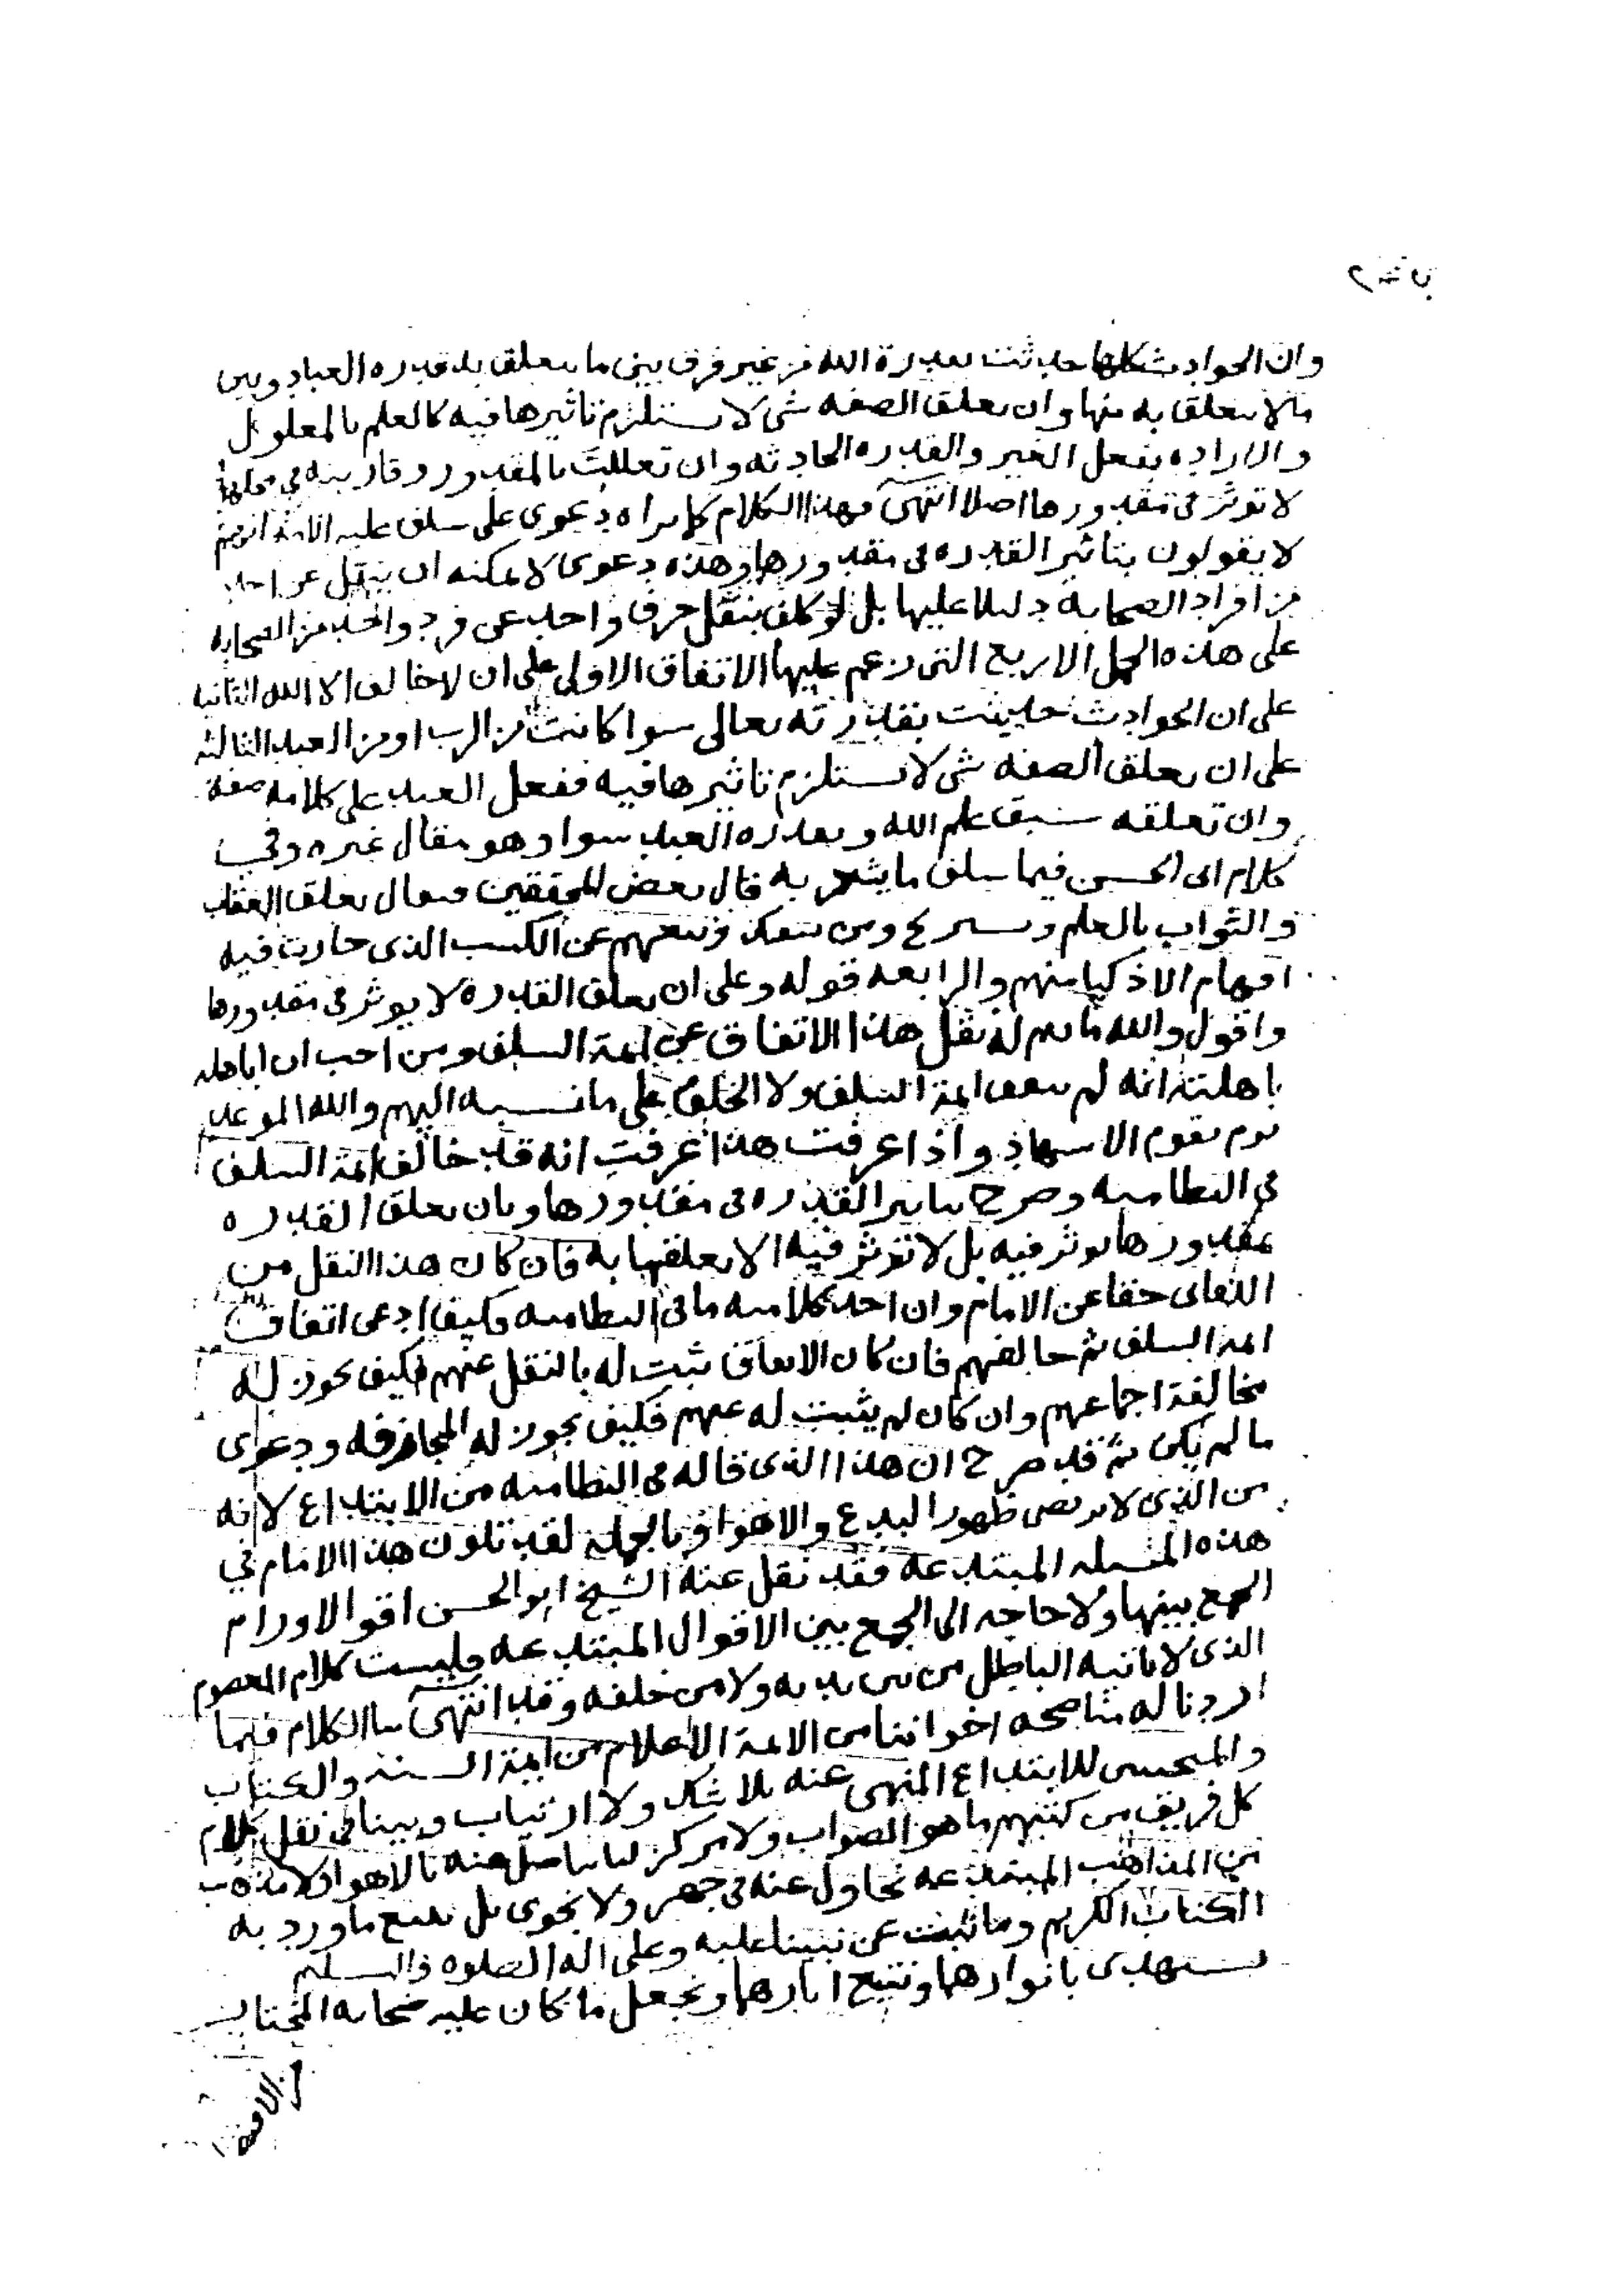 وان الحوادث كلها حدثت بقدرة الله من غير فرق بين ما يتعلق به قدره العباد وبين
مالا يتعلق به منها وان تعلق الصفه شى لا يستلزم تاثيرها فيه كالعلم بالمعلوم
والاراده بفعل الغير والقدره الحادثه وان تعلقت بالمقدور وقارنته فى محلها
لا توثر فى مقدورها اصلا انتهى فهذا الكلام كما تراه دعوى على سلف عليه الامه انهم
لا يقولون بتاثير القدره فى مقدورها وهذه دعوى لا يمكنه ان ينقل عن احد
من افراد الصحابه دليلا عليها بل لو كلف بنقل حرف واحد عن فرد واحد من الصحابه
على هذه الجمل الاربع التى زعم عليها الاتفاق الاولى على ان لا خالق الا الله الثانيه
على ان الحوادث حدثت بقدرته تعالى سوا كانت من الرب او من العبد الثالثه
على ان تعلق الصفه شى لا يستلزم تاثيرها فيه ففعل العبد على كلامه صفة
وان تعلقه سبق علم الله وبقدره العبد سوا وهو مقال غيره وفى
كلام ابى الحسين فيما سلف ما يشعر به قال بعض المحققين تعلق العقاب
والثواب بالعلم عن الكسب الذى حارت فيه
افهام الاذكيا منهم والرابعه قوله وعلى ان تعلق القدرة لا يوثر فى مقدورها
واقول والله ما تم له نقل هذا الاتفاق عن ايمة السلف ومن احب ان اباهله
باهلته انه لم ايمة السلف ولا الخلف على ما نسبه اليهم والله الموعد
يوم يقوم الاشهاد واذا عرفت هذا عرفت انه قد خالف ايمة السلف
فى النظاميه وصرح بتاثير القدره فى مقدورها وبان تعلق القدره
بمقدورها يوثر فيه بل لا توثر فيه الا بعلقها به فان كان هذا النقل من
اللقانى حقا عن الامام وان احد كلاميه ما فى النظاميه فكيف ادعى اتفاق
ايمة السلف ثم خالفهم فان كان الاتفاق ثبت له بالنقل عنهم فكيف يجوز له
مخالفة اجماعهم وان كان لم يثبت له عنهم فكيف يجوز له المجازفه ودعوى
ما لم يكن ثم قد صرح ان هذا الذى قاله فى النظاميه من الابتداع لانه
من الذى لا يرتضى ظهور البدع والاهوا وبالجمله لقد تلون هذا الامام في
هذه المسله المبتدعه فقد نقل عنه الشيخ ابو الحسن اقوالا ورام
الجمع بينها ولا حاجه الى الجمع بين الاقوال المبتدعه وليست كلام المعصوم
الذى لا ياتيه الباطل من بين يديه ولا من خلفه وقد انتهى بنا الكلام فيما
اردنا له مناصحه اخواننا من الايمة الاعلام من ايمة السنه والكتاب
للابتداع المنهى عنه بلا شك ولا ارتياب وبينا فى نقل كلام
كل فريق من كتبهم ما هو الصواب ولا بالاهوا ولا
من المذاهب المبتدعه نحاول عنه فى جهر ولا نجوى بل نتبع ما ورد به
الكتاب الكريم وما ثبت عن نبينا عليه وعلى اله الصلوه والسلم
نستهدى بانوارهما ونتبع اثارهما ونجعل ما كان عليه صحابه المختار